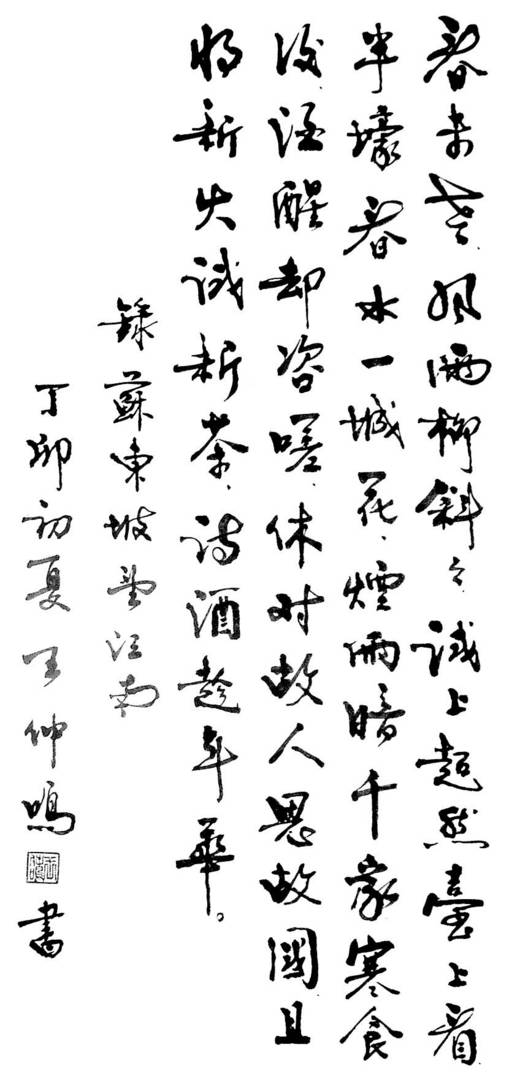 春未老風雨柳斜〻試上超然臺上看
半壕春水一城花煙雨暗千家寒食
後酒醒却咨嗟休對故人思故國且
將新火試新茶詩酒趁年華。
錄蘇東坡望江南
丁卯初夏王仲鳴書